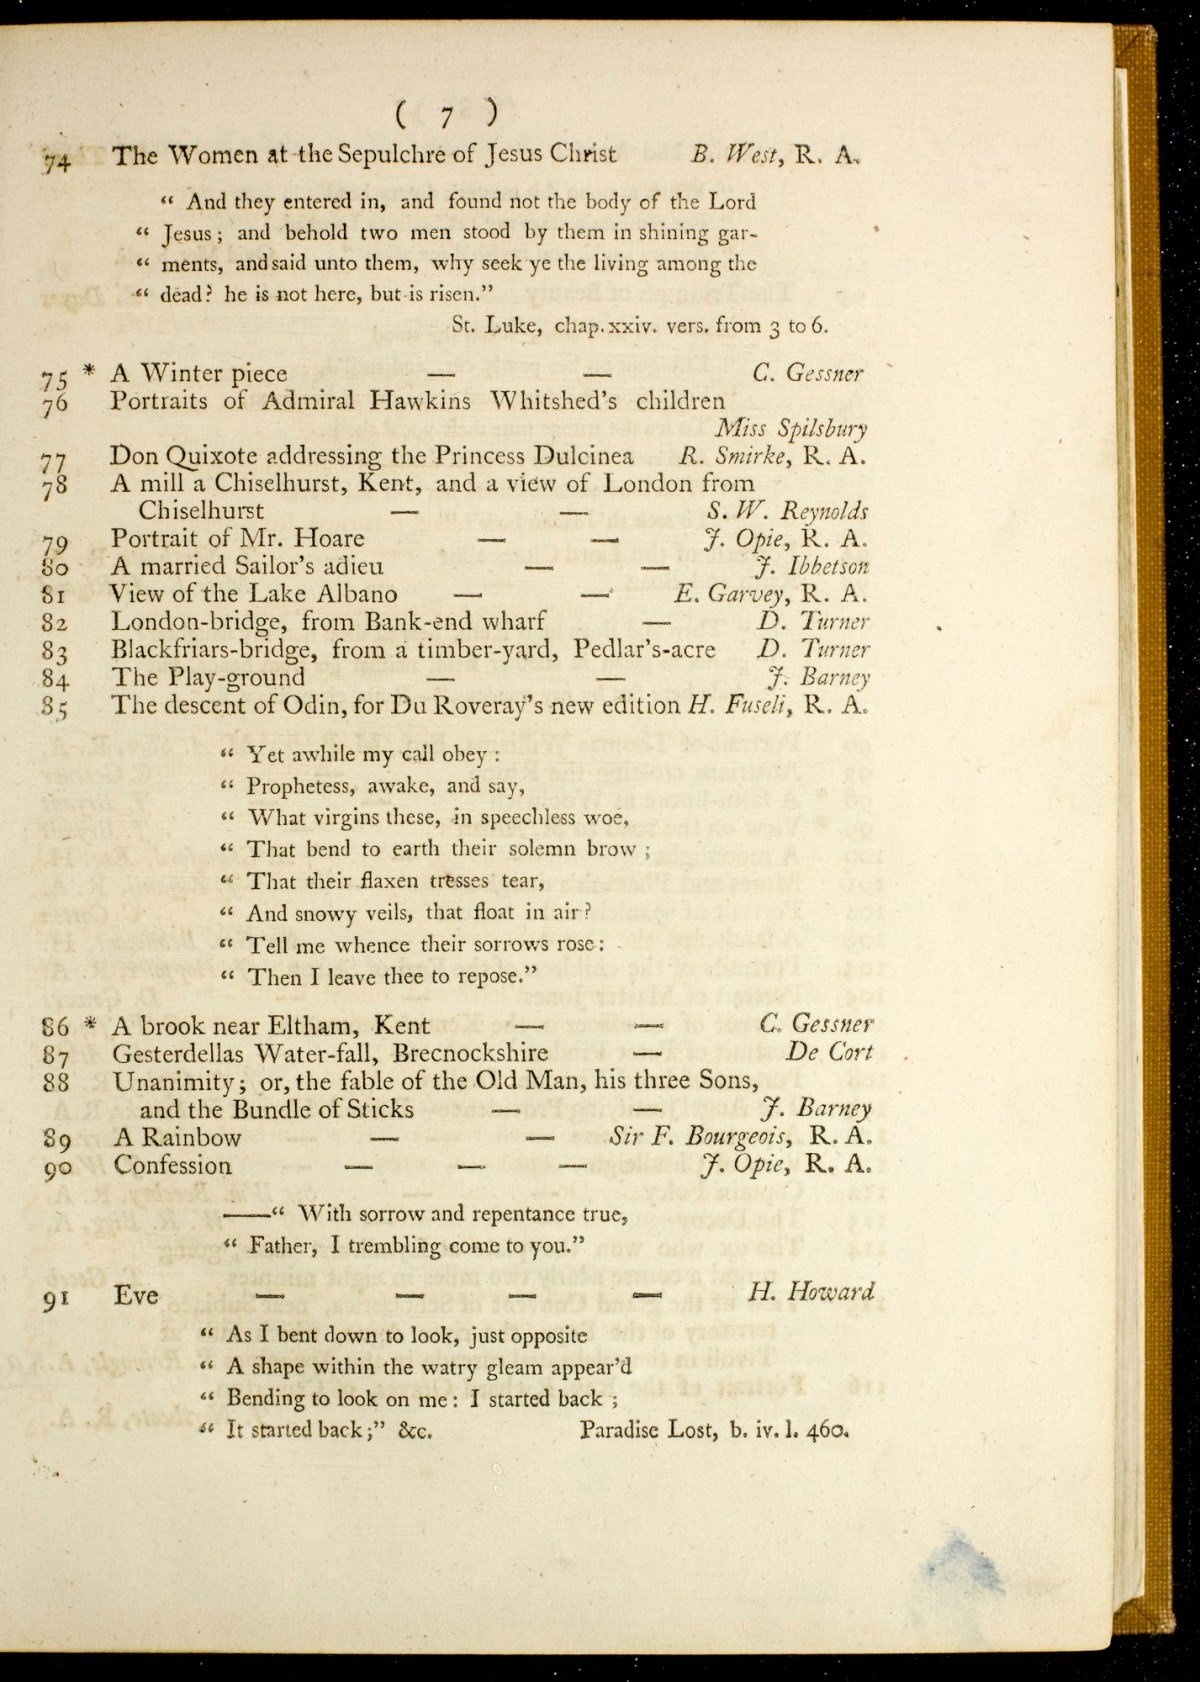 ( 7 )
74 The Women at the Sepulchre of Jesus Christ B. West, R. A.
“ And they entered in, and found not the body of the Lord
“ Jesus; and behold two men stood by them in shining gar-
“ ments, and said unto them, why seek ye the living among the
“ dead? he is not here, but is risen.”
St. Luke, chap. xxiv. vers. from 3 to 6.
75 * A Winter piece — — C. Gessner
76 Portraits of Admiral Hawkins Whitshed's children
Miss Spilsbury
77 Don Quixote addressing the Princess Dulcinea R. Smirke, R. A.
78 A mill a Chiselhurst, Kent, and a view of London from
Chiselhurst — — S. W. Reynolds
79 Portrait of Mr. Hoare — — J. Opie, R. A.
80 A married Sailor's adieu — — J. Ibbetson
81 View of the Lake Albano — — E. Garvey, R. A.
82 London-bridge, from Bank-end wharf — D. Turner
83 Blackfriars-bridge, from a timber-yard, Pedlar's-acre D. Turner
84 The Play-ground — — J. Barney
85 The descent of Odin, for Du Roveray's new edition H. Fuseli, R. A.
“ Yet awhile my call obey :
“ Prophetess, awake, and say,
“ What virgins these, in speechless woe,
“ That bend to earth their solemn brow ;
“ That their flaxen tresses tear,
“ And snowy veils, that float in air?
“ Tell me whence their sorrows rose:
“ Then I leave thee to repose.”
86 * A brook near Eltham, Kent — — C. Gessner
87 Gesterdellas Water-fall, Brecnockshire — De Cort
88 Unanimity; or, the fable of the Old Man, his three Sons,
and the Bundle of Sticks — — J. Barney
89 A Rainbow — — Sir F. Bourgeois, R. A.
90 Confession — — — J. Opie, R. A.
——“ With sorrow and repentance true,
“ Father, I trembling come to you.”
91 Eve — — — — H. Howard
“ As I bent down to look, just opposite
“ A shape within the watry gleam appear'd
“ Bending to look on me: I started back ;
“ It started back;” &c. Paradise Lost, b. iv. l. 460.